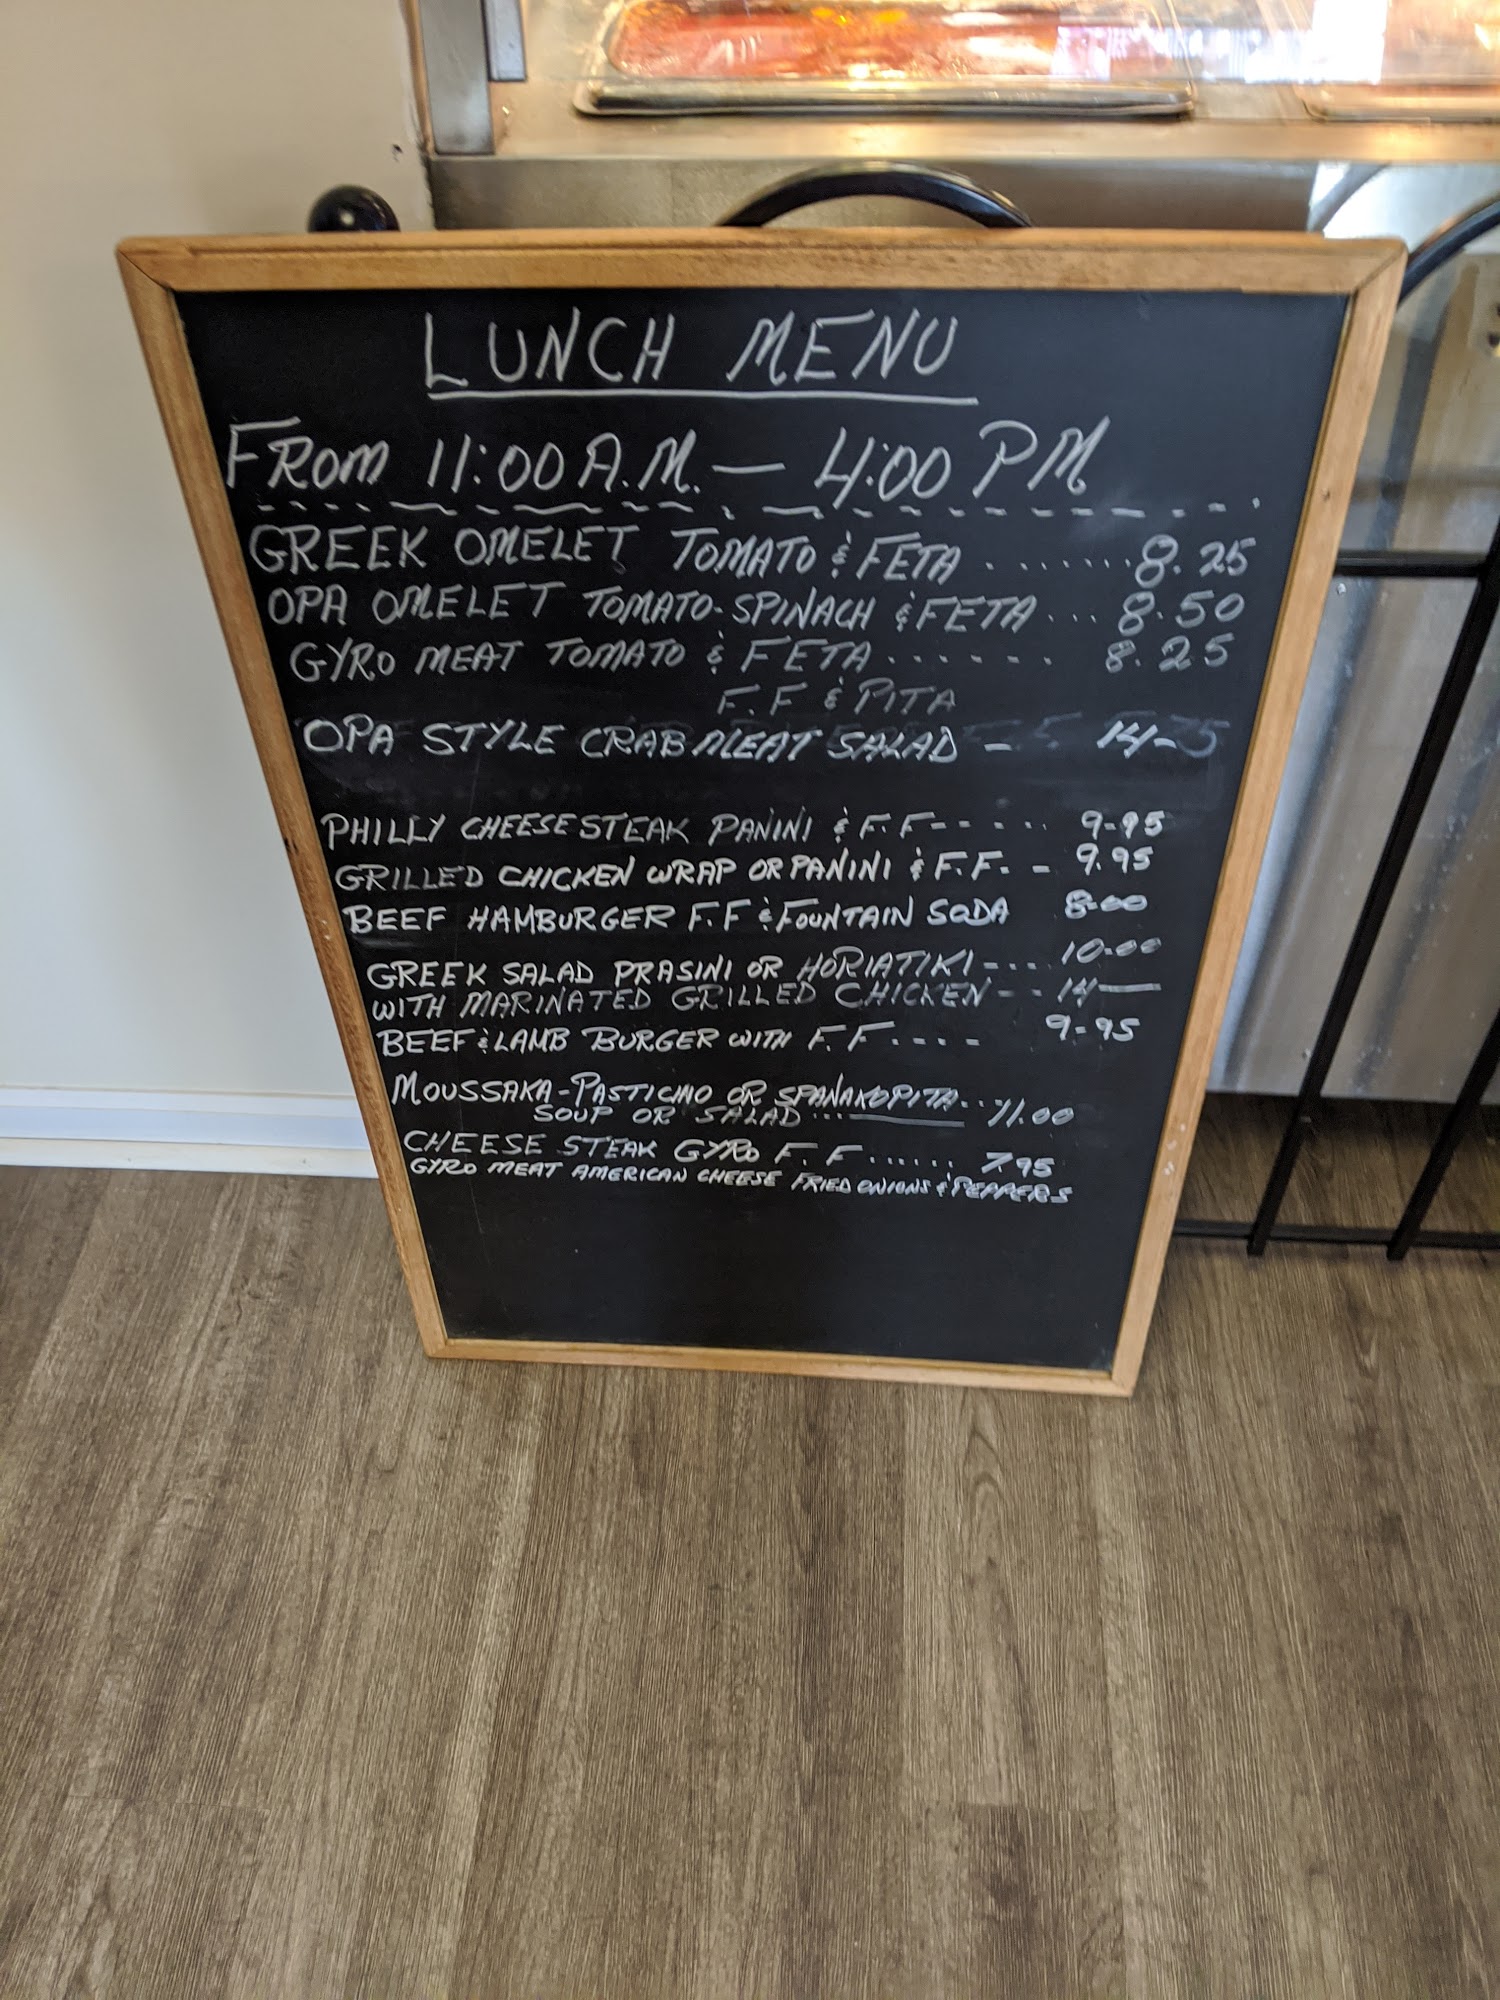 LUNCH MENU
FROM 11:00 A.M. — 4:00 PM
GREEK OMELET TOMATO & FETA ........ 8.25
OPA OMELET TOMATO-SPINACH & FETA ... 8.50
GYRO MEAT TOMATO & FETA ....... 8.25
F.F & PITA
OPA STYLE CRAB MEAT SALAD - 14-
PHILLY CHEESESTEAK PANINI & F.F----- 9-95
GRILLED CHICKEN WRAP OR PANINI & F.F. - 9.95
BEEF HAMBURGER F.F & FOUNTAIN SODA 8-00
GREEK SALAD PRASINI OR HORIATIKI--- 10-00
WITH MARINATED GRILLED CHICKEN-- 14—
BEEF & LAMB BURGER WITH F.F.... 9-95
MOUSSAKA-PASTICHIO OR SPANAKOPITA...
SOUP OR SALAD ... 11.00
CHEESE STEAK GYRO F.F...... 7.95
GYRO MEAT AMERICAN CHEESE FRIED ONIONS & PEPPERS